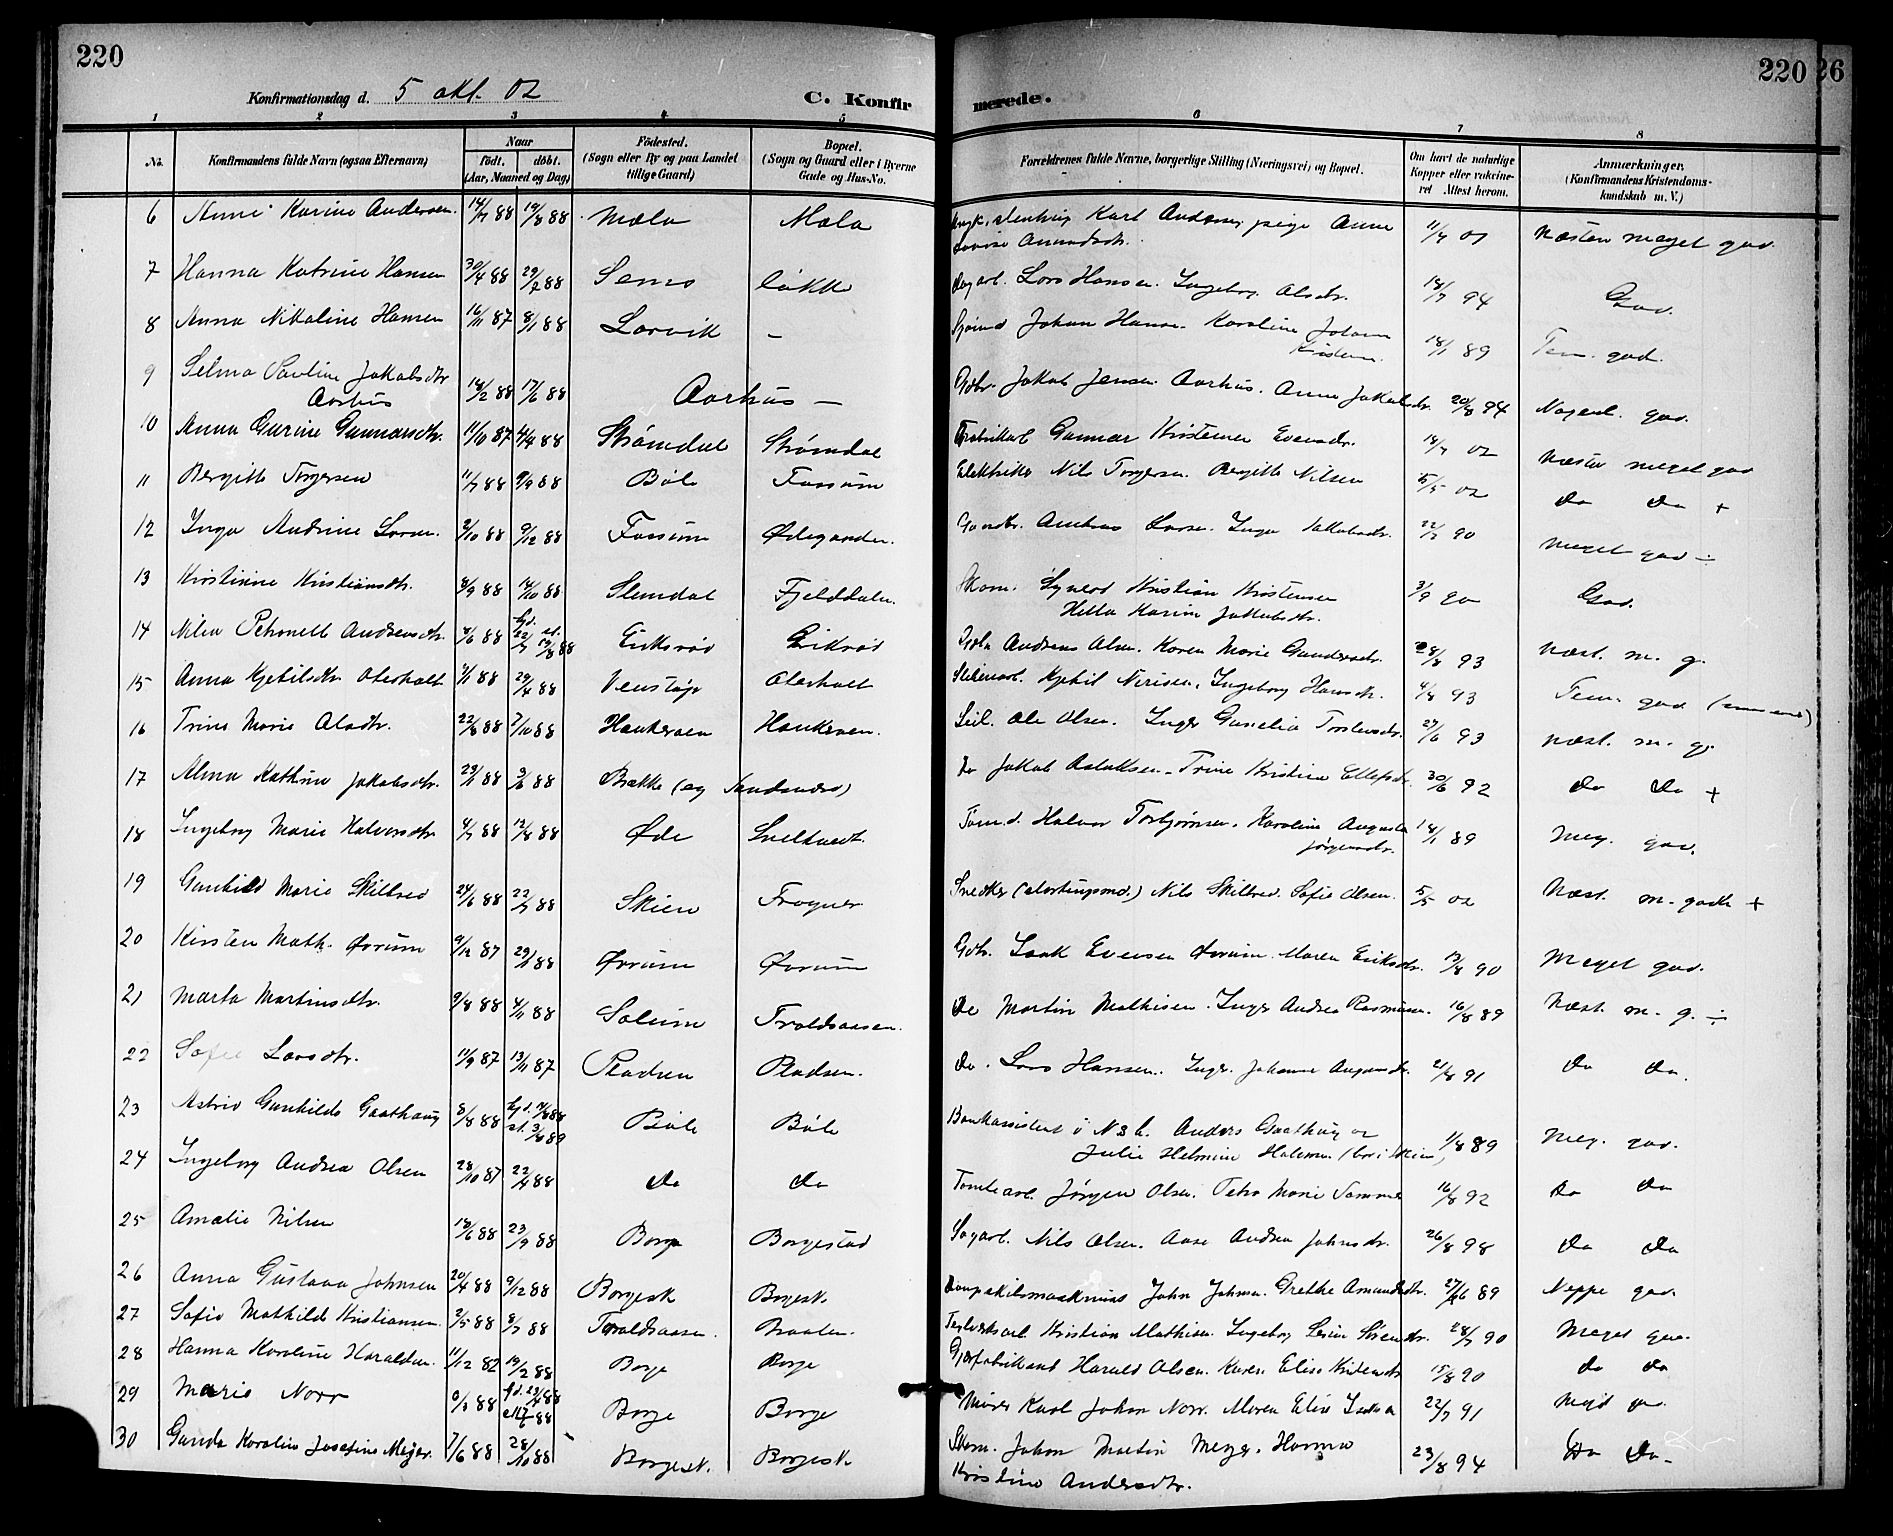 220
Konfirmationsdag d. 5 okt. 02
C. Konfir
merede.
220 26
1 2 3 4 5 6 7 8
No.
Konfirmandens fulde Navn (ogsaa Efternavn)
Naar
født. døbt.
(Aar, Maaned og Dag)
Fødested.
(Sogn eller By og paa Landet
tillige Gaard)
Bopæl.
(Sogn og Gaard eller i Byerne
Gade og Hus-No.
Forældrenes fulde Navne, borgerlige Stilling (Næringsvei) og Bopæl.
Om havt de naturlige
Kopper eller vakcine-
ret Attest herom.
Anmærkninger.
(Konfirmandens Kristendoms-
kundskab m. V.)
6 Anne Karine Andersen. 14/7 88 19/8 88 Mæla Mæla Karl Andersen, pige Anne 11/7 02 Næsten meget god
Lovise Amundsdr.
7 Hanna Katrine Hansen 30/4 88 29/7 88 Løkke Lars Hansen. Ingeborg Olsdr. 18/7 94 God.
8 Anna Nikoline Hansen 16/11 87 8/1 88 Larvik – Sjømd Johan Hansen. Karoline Johanne 18/1 89 Tem. god.
Kristensen.
9 Selma Pauline Jakobsdtr 18/2 88 17/6 88 Aarhus – Gdbr. Jakob Jensen Aarhus. Anne Jakobsdr. 20/8 94 Nogenl. god.
Aarhus
10 Anna Gurine Gunnarsdtr. 11/10 87 4/4 88 Strømdal Strømdal Fabrikarb. Gunnar Kristensen Evensdr. 18/7 02 Næsten meget god
11 Bergitte Torgersen 11/7 88 9/9 88 Bøle Fossum Nils Torgersen. Bergitte Nilsen 5/5 02 Do Do +
12 Inga Andrine Larsen. 2/10 88 9/12 88 Fossum Ødegaarden. Gaardbr. Andreas Larsen. Inga Jakobsdr. 22/7 90 Meget god ÷
13 Kirstinne Kristiansdtr. 8/9 88 14/10 88 Slemdal Fjelddalen. Skom. Kristian Kristensen 3/9 90 God.
Hella Karine Jakobsdr.
14 Petronelle Andreasdtr. 4/6 88 hjd. 22/7 88 Eriksrød Eriksrød Andreas Olsen. Karen Marie Gundersdr. 28/8 93 Næst. m. g.
15 Anna Kjetilsdtr Oterholt 1/1 88 29/4 88 Venstøp Oterholt Kjetil Nirisen, Ingeborg Hansdtr. 4/8 93 Tem. god
16 Trine Marie Olsdtr. 22/8 88 7/10 88 Haukeraen Haukeraen. Seil. Ole Olsen. Inger Gunelia Torstensdr. 27/6 93 Næst. m. g.
17 Alma Kathrine Jakobsdtr. 29/1 88 3/6 88 Brække Do Jakob Aslaksen. Trine Kristine Ellefsdr. 30/6 92 Do Do +
18 Ingeborg Marie Halvorsdtr 4/7 88 12/8 88 Øde Sneltvedt. Halvor Torbjørnsen. Karoline Augusta 18/1 89 Meg. god.
Jørgensdr.
19 Gunhild Marie Skilbred 24/6 88 22/7 88 Skien Frogner Snedker (Stortingsmd.) Nils Skilbred. Sofie Olsen. 5/5 02 Næst. m. godt +
20 Kirsten Math. Øvrum 9/12 87 29/1 88 Øvrum Øvrum Gdbr. Isak Evensen Øvrum. Maren Eriksdtr. 13/8 90 Meget god.
21 Marta Martinsdtr. 9/8 88 4/11 88 Solum Troldsaasen. Do Martin Mathisen. Inger Andrea Rasmussen. 16/8 89 Næst. m. g. ÷
22 Sofie Larsdtr. 11/9 87 13/11 87 Pladsen Pladsen. Do. Lars Hansen. Inger Johanne 21/8 91 Do Do.
23 Astrid Gunhilds Gaathaug 5/8 88 hjd. st. Bøle Bøle Bankassistent i Anders Gaathaug og 1/8 89 Meg. god.
Julie Helmine Halvorsen (bor i Skien)
24 Ingeborg Andrea Olsen 28/10 87 22/4 88 Do Do Tomtearb. Jørgen Olsen. Petra Marie 16/8 92 Do Do
25 Amalie Nilsen 18/6 88 23/9 88 Borge Borgestad Sagarb. Nils Olsen. Aase Andrea Johnsdr. 26/8 98 Do Do
26 Anna Gustava Johnsen 20/4 88 9/12 88 Borgesk Borgesk. John Johnsen. Grethe Amundsdtr. 27/6 89 Neppe god.
27 Sofie Mathilde Kristiansen. 3/5 88 8/7 88 Troldsaasen. Braaten. Teglverksarb Kristian Mathisen. Ingeborg 28/7 90 Meget god.
28 Hanna Karoline Haraldsen. 11/12 82 19/2 88 Borge Borge Harald Olsen. Karen Elise 15/8 90 Do Do
29 Marie Norr 6/3 88 hd. 29/4 88 Borge Borge Murer Karl Johan Norr. Maren Elise 22/7 91 Megt
30 Gunda Karoline Josefine Meyer. 7/6 88 28/10 88 Borgesk. Borgesk Skom. Johan Martin Meyer. Hanna 23/8 94 Do Do
Kristine Andersdtr.